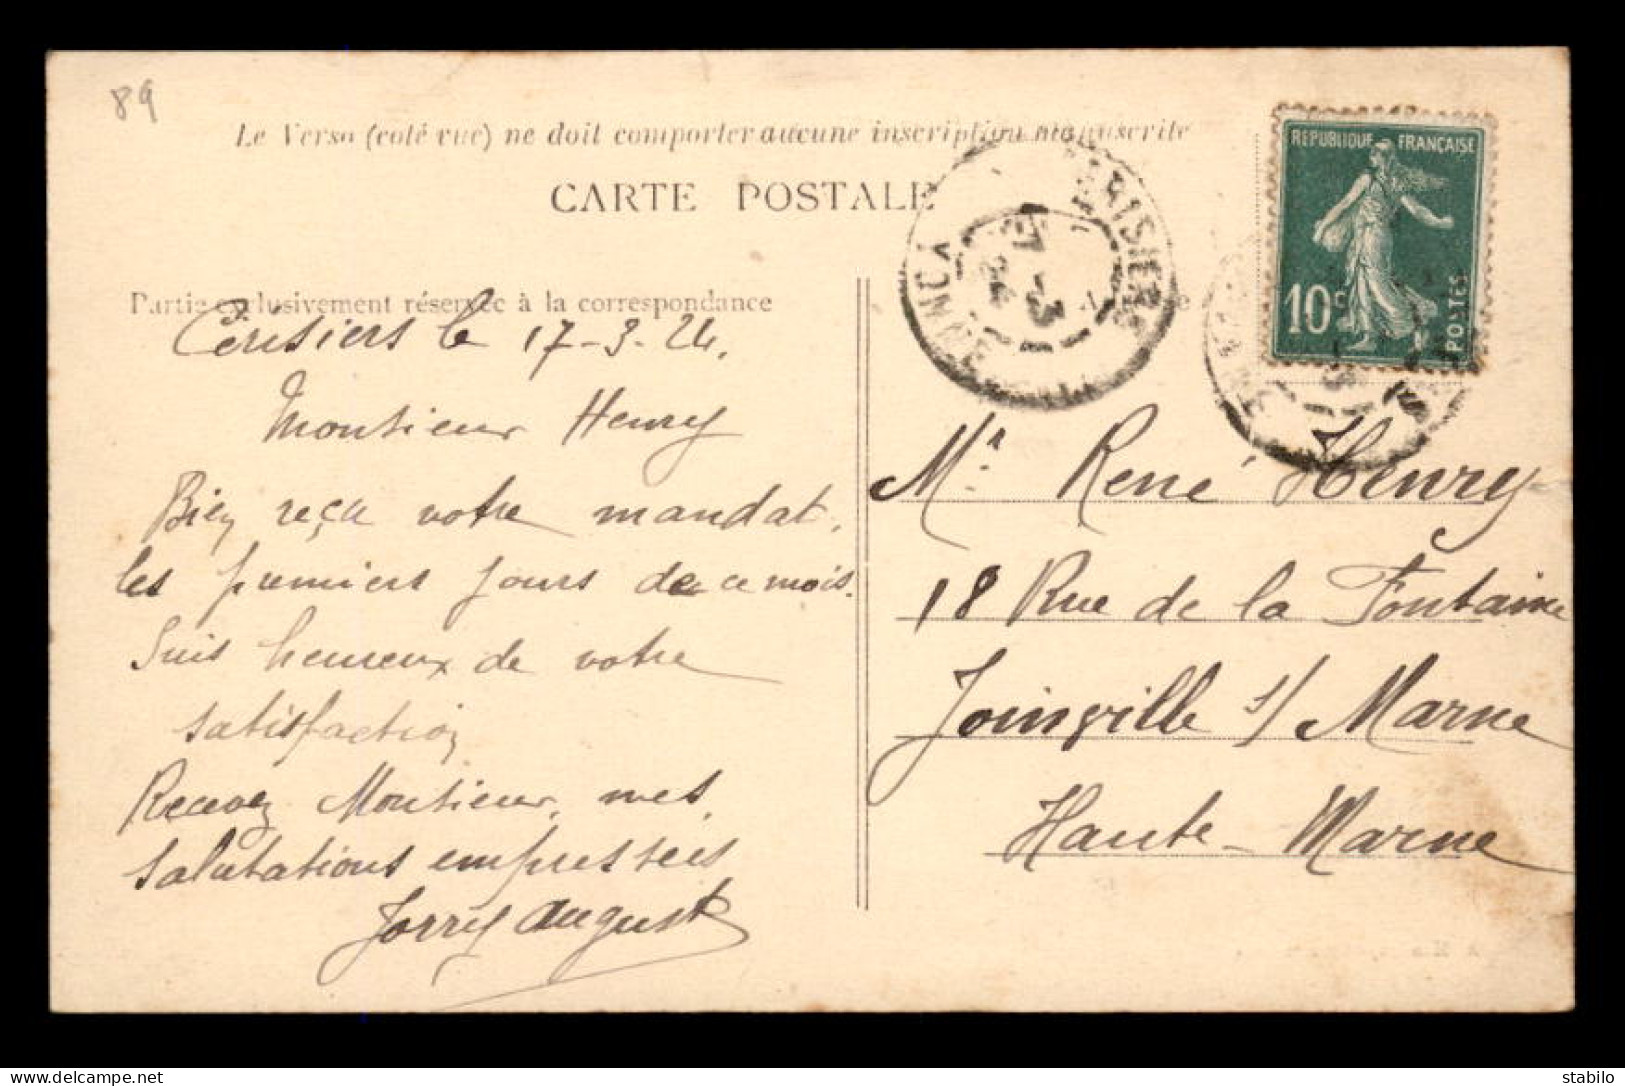 89
Le Verso (coté vue) ne doit comporter aucune inscription manuscrite
CARTE POSTALE
REPUBLIQUE FRANÇAISE
10c
POSTES
CERISIERS
YONNE
17 -3
24
Partie exclusivement réservée à la correspondance
Cerisiers le 17-3-24.
Monsieur Henry
Bien reçu votre mandat.
les premiers jours de ce mois.
Suis heureux de votre
satisfaction
Recevez Monsieur, mes
salutations empressées
Jorry August
Mr. René Henry
18 Rue de la Fontaine
Joinville s/ Marne
Haute-Marne
stabilo